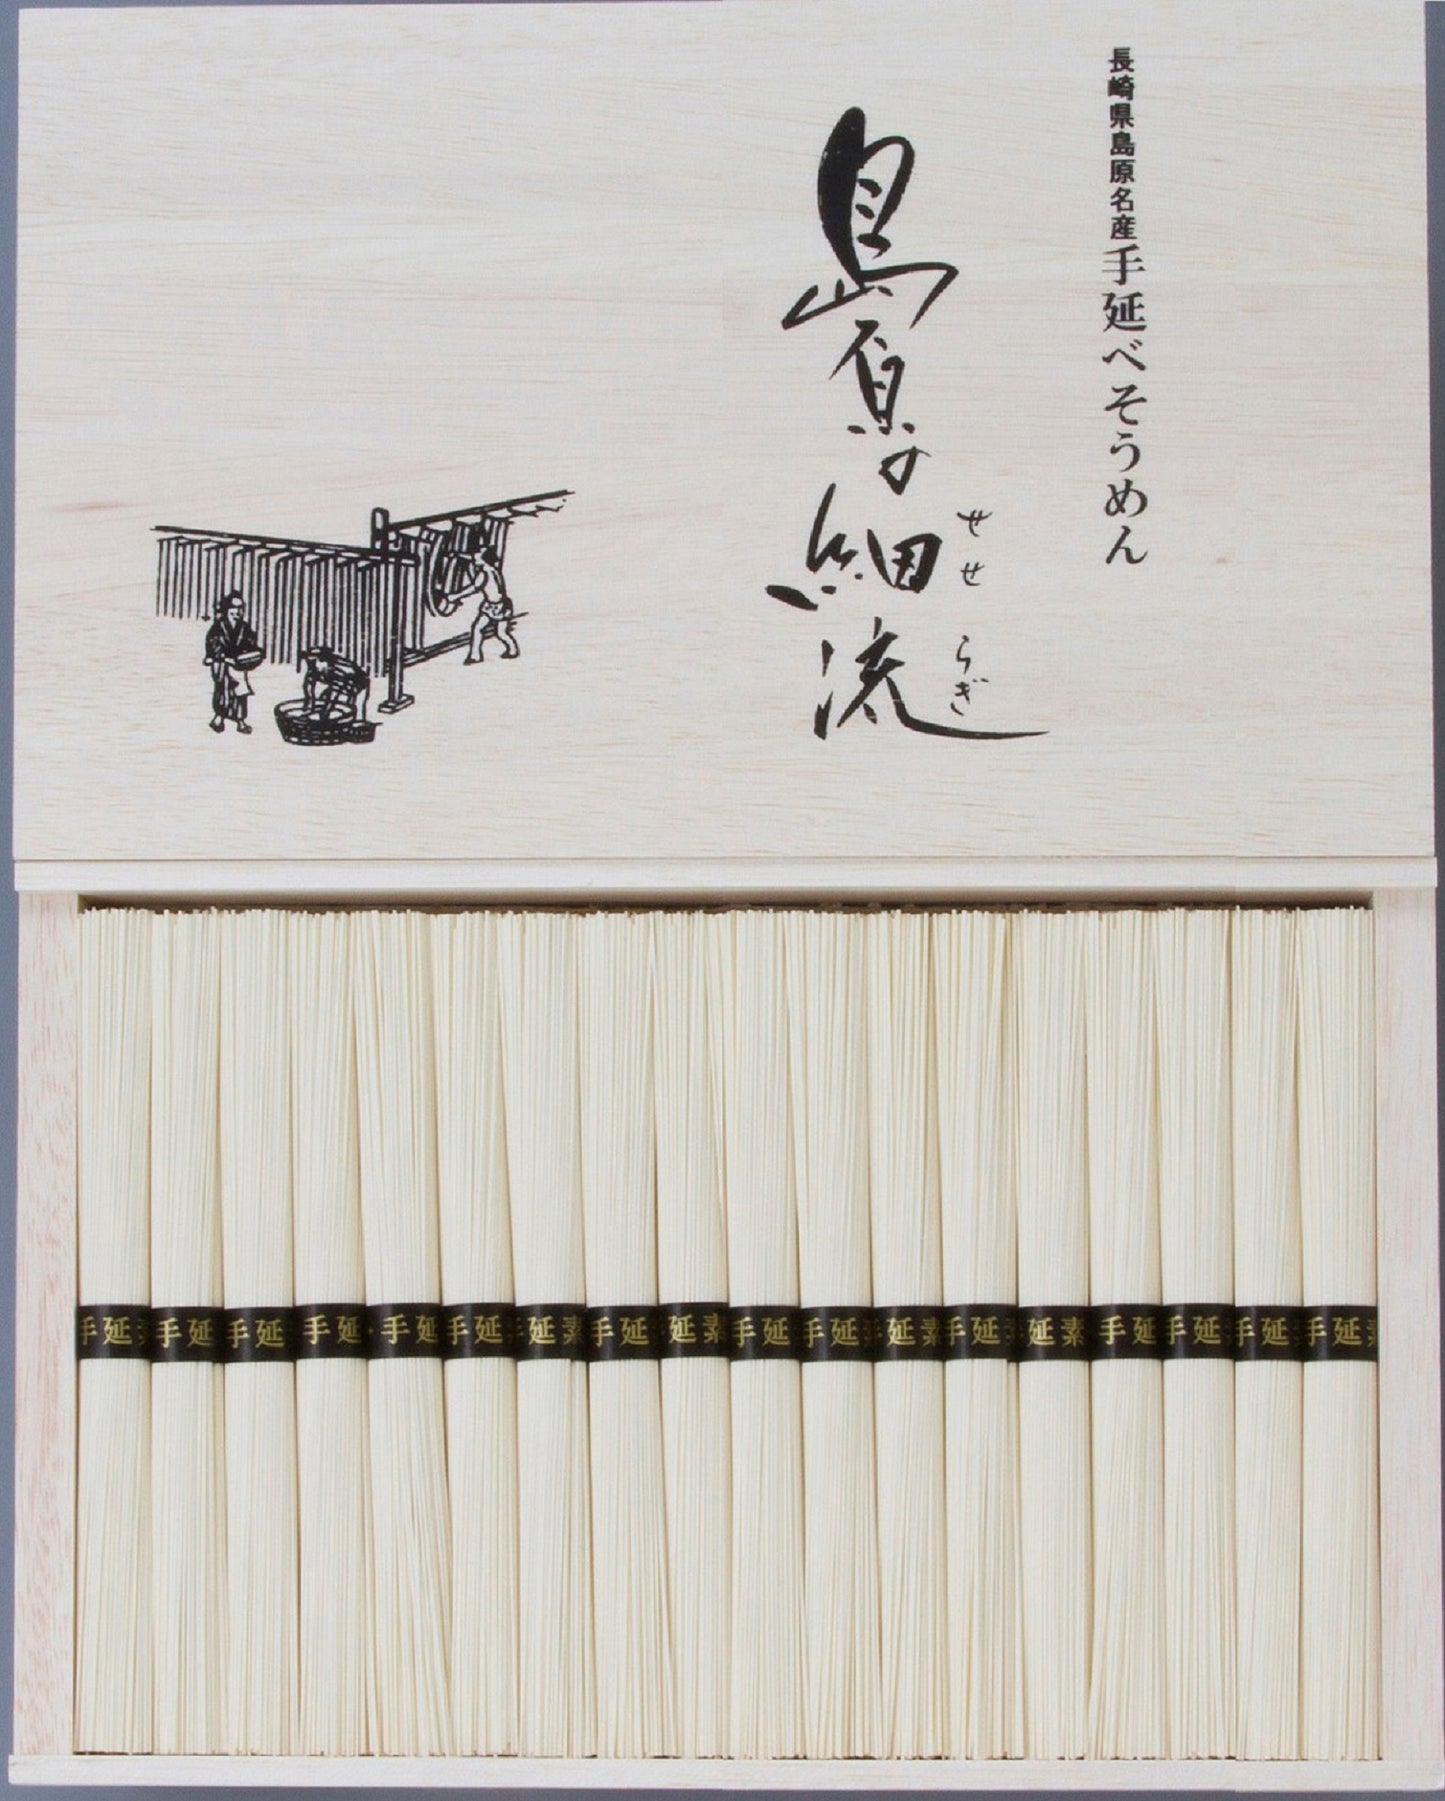 長崎県島原名産手延べそうめん
島原の細流
せせらぎ
手延素
手延
手延
手延
手延
手延
延素
手延
延素
手延
手延
延素
手延
延素
手延
手延
手延
手延素